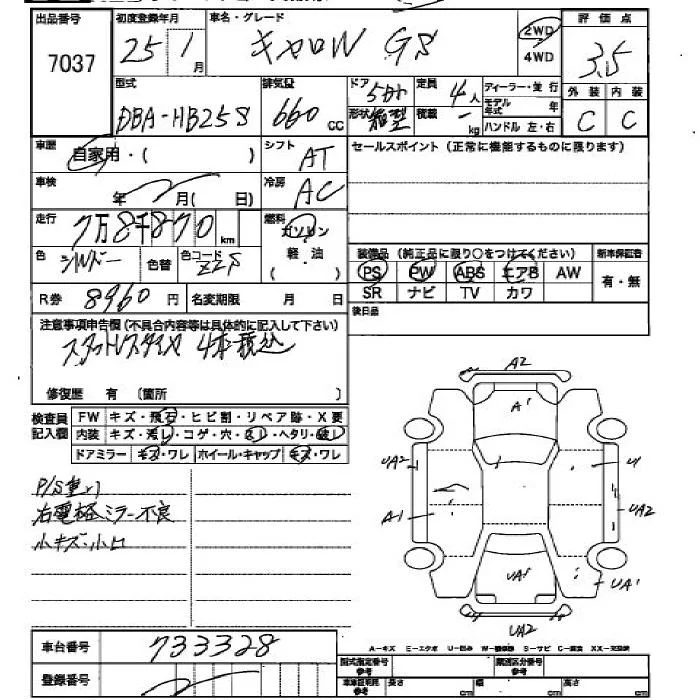 出品番号 初度登録年月 車名・グレード 評価点
7037 25 1月 キャロル GS 2WD 3.5
4WD
外装 内装
型式 排気量 ドア 定員 4人 ディーラー・並行
DBA-HB25S 660cc 5ドア 形状 箱型 積載 -kg モデル年式 年 C C
ハンドル 左・右
車歴 自家用・( ) シフト AT セールスポイント (正常に機能するものに限ります)
車検 年 月( 日) 冷房 AC
走行 7万8千870km 燃料 ガソリン
色 シルバー 色替 色コード ZZS 軽・油 装備品 (純正品に限り○をつけてください) 新車保証書
( ) PS PW ABS エアB AW 有・無
R券 8960円 名変期限 月 日 SR ナビ TV カワ
注意事項申告欄(不具合内容等は具体的に記入して下さい) 後日品
スタットレスタイヤ 4本積込
修復歴 有 (箇所 )
検査員 FW キズ・飛石・ヒビ割・リペア跡・X要
記入欄 内装 キズ・汚レ・コゲ・穴・スレ・ヘタリ・破レ
ドアミラー キズ・ワレ ホイール・キャップ キズ・ワレ
A2
A1
UA2 U1
P/S重い
右電極ミラー不良 A1 UA2
小キズ・小凹
UA1 UA1
UA2
車台番号 733328 A-キズ E-エクボ U-凹み W-補修跡 S-サビ C-腐食 XX-交換済
登録番号 型式指定番号 参考 類別区分番号 参考
車車証明用 参考 長さ cm 幅 cm 高さ cm